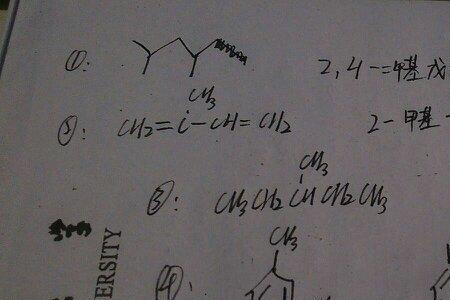 ①: 2,4-二甲基戊
CH3
②: CH2=C-CH=CH2 2-甲基-
CH3
③: CH3CH2CHCH2CH3
ERSITY
④: CH3